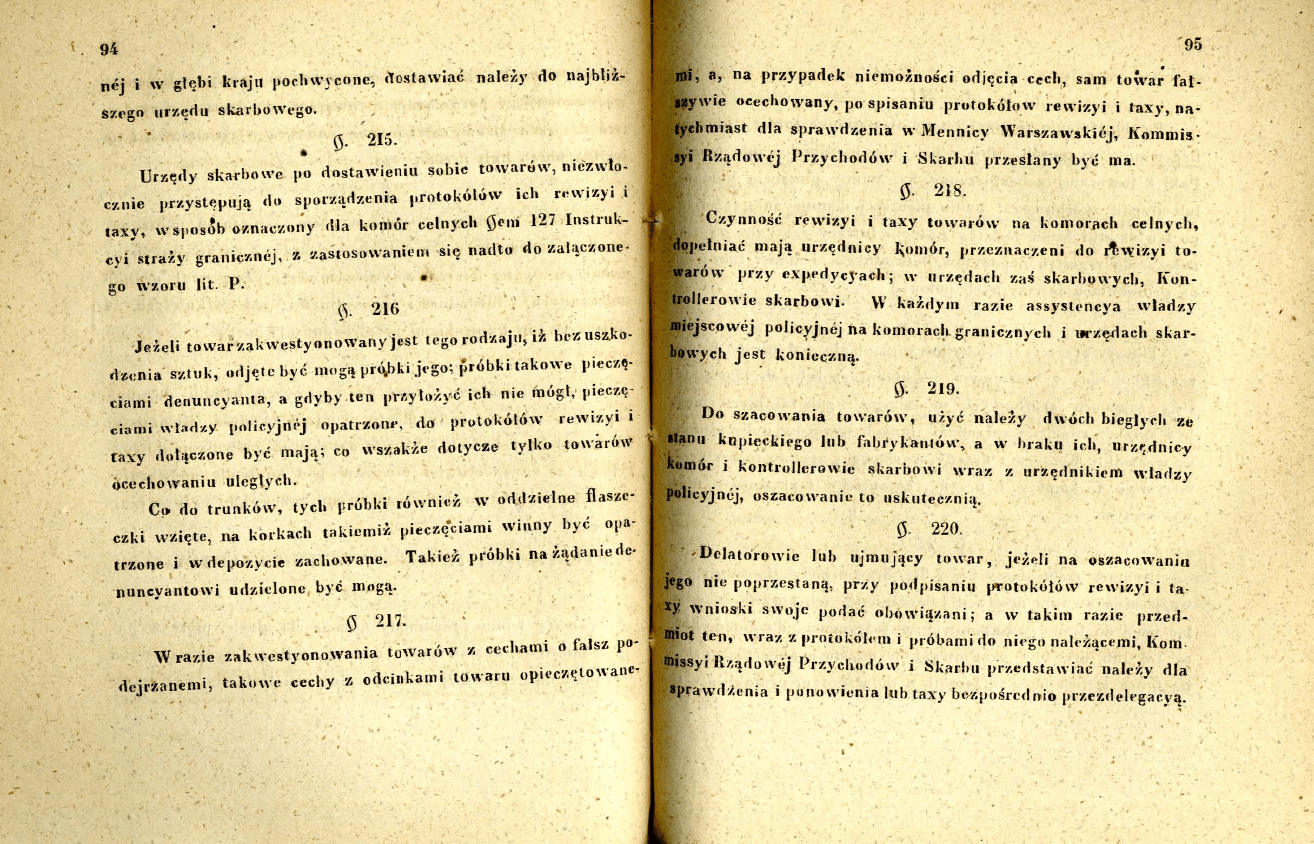 94
néj i w głębi kraju pochwycone, dostawiać należy do najbliż-
szego urzędu skarbowego.
§. 215.
Urzędy skarbowe po dostawieniu sobie towarów, niezwło-
cznie przystępują do sporządzenia protokółów ich rewizyi i
taxy, w sposób oznaczony dla komór celnych §em 127 Instruk-
cyi straży granicznéj, z zastosowaniem się nadto do załączone-
go wzoru lit. P.
§. 216
Jeżeli towar zakwestyonowany jest tego rodzaju, iż bez uszko-
dzenia sztuk, odjęte być mogą próbki jego; próbki takowe pieczę-
ciami denuncyanta, a gdyby ten przyłożyć ich nie mógł, pieczę-
ciami władzy policyjnéj opatrzone, do protokółów rewizyi i
taxy dołączone być mają; co wszakże dotycze tylko towarów
ocechowaniu uległych.
Co do trunków, tych próbki również w oddzielne flasze-
czki wzięte, na korkach takiemiż pieczęciami winny być opa-
trzone i w depozycie zachowane. Takież próbki na żądanie de-
nuncyantowi udzielone być mogą.
§ 217.
W razie zakwestyonowania towarów z cechami o fałsz po-
dejrżanemi, takowe cechy z odcinkami towaru opieczętowane-
95
mi, a, na przypadek niemożności odjęcia cech, sam towar fał-
szywie ocechowany, po spisaniu protokółow rewizyi i taxy, na-
tychmiast dla sprawdzenia w Mennicy Warszawskiéj, Kommis-
syi Rządowéj Przychodów i Skarbu przesłany być ma.
§. 218.
Czynność rewizyi i taxy towarów na komorach celnych,
dopełniać mają urzędnicy komór, przeznaczeni do rewizyi to-
warów przy expedycyach; w urzędach zaś skarbowych, Kon-
trollerowie skarbowi. W każdym razie assystencya władzy
miejscowéj policyjnéj na komorach granicznych i urzędach skar-
bowych jest konieczną.
§. 219.
Do szacowania towarów, użyć należy dwóch biegłych ze
stanu kupieckiego lub fabrykantów, a w braku ich, urzędnicy
komór i kontrollerowie skarbowi wraz z urzędnikiem władzy
policyjnéj, oszacowanie to uskutecznią.
§. 220.
Delatorowie lub ujmujący towar, jeżeli na oszacowaniu
jego nie poprzestaną, przy podpisaniu protokółów rewizyi i ta-
xy wnioski swoje podać obowiązani; a w takim razie przed-
miot ten, wraz z protokółem i próbami do niego należącemi, Kom-
missyi Rządowéj Przychodów i Skarbu przedstawiać należy dla
sprawdzenia i ponowienia lub taxy bezpośrednio przez delegacyą.